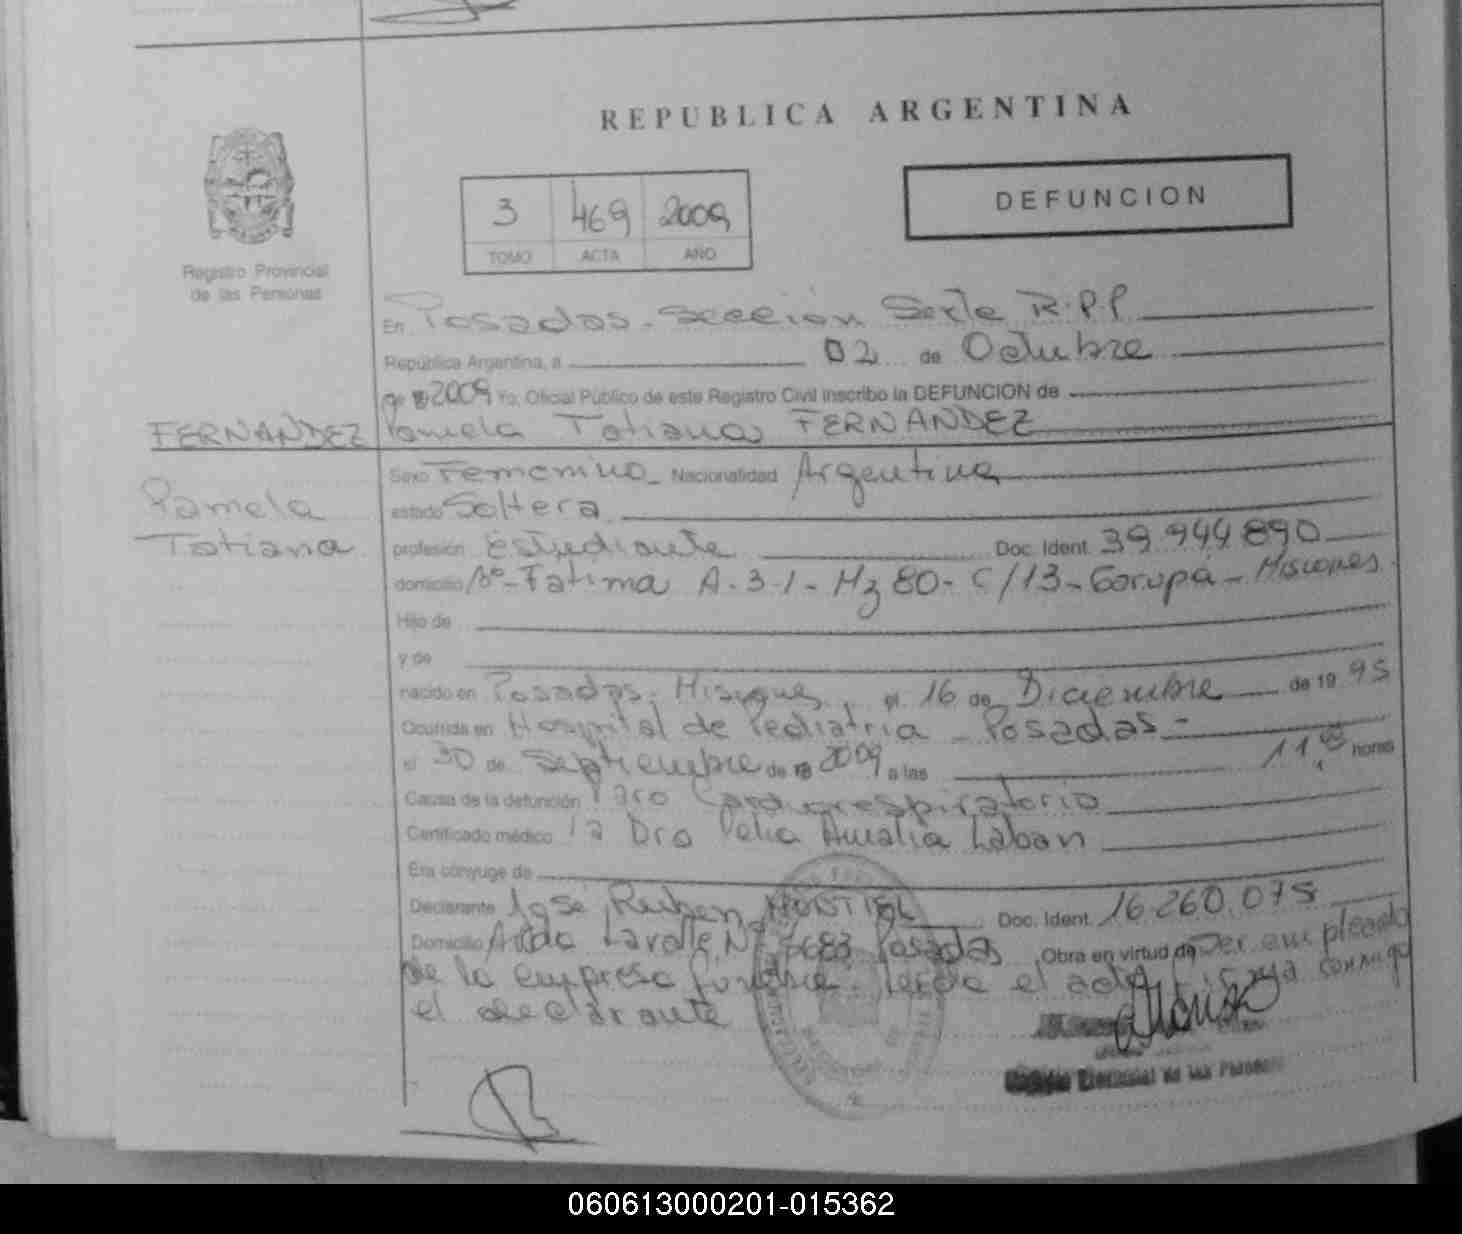 REPUBLICA ARGENTINA
DEFUNCION
3 469 2009
TOMO ACTA AÑO
Registro Provincial
de las Personas
En Posadas - Sección Sexta R.P.P.
República Argentina, a 02 de Octubre
de 2009 Yo, Oficial Público de este Registro Civil inscribo la DEFUNCION de
FERNANDEZ Pamela Tatiana FERNANDEZ
Sexo Femenino - Nacionalidad Argentina
Pamela
estado Soltera
Tatiana
profesión Estudiante Doc. Ident. 39.944.890
domicilio Bº - Fatima A-3-1 - Mz 80 - C/13 - Garupá - Misiones
Hijo de
y de
nacido en Posadas, Misiones, el 16 de Diciembre de 1995
Ocurrida en Hospital de Pediatria - Posadas -
el 30 de Septiembre de 2009 a las 11,00 horas
Causa de la defunción Paro Cardiorespiratorio
Certificado médico la Dra Delia Amalia Laban
Era cónyuge de
Declarante José Ruben MONTIEL Doc. Ident. 16.260.075
Domicilio Avda Lavalle Nº Posadas Obra en virtud de Ser empleado
de la empresa funebre. Leida el acta, firma conmigo
el declarante
Registro Provincial de las Personas
060613000201-015362